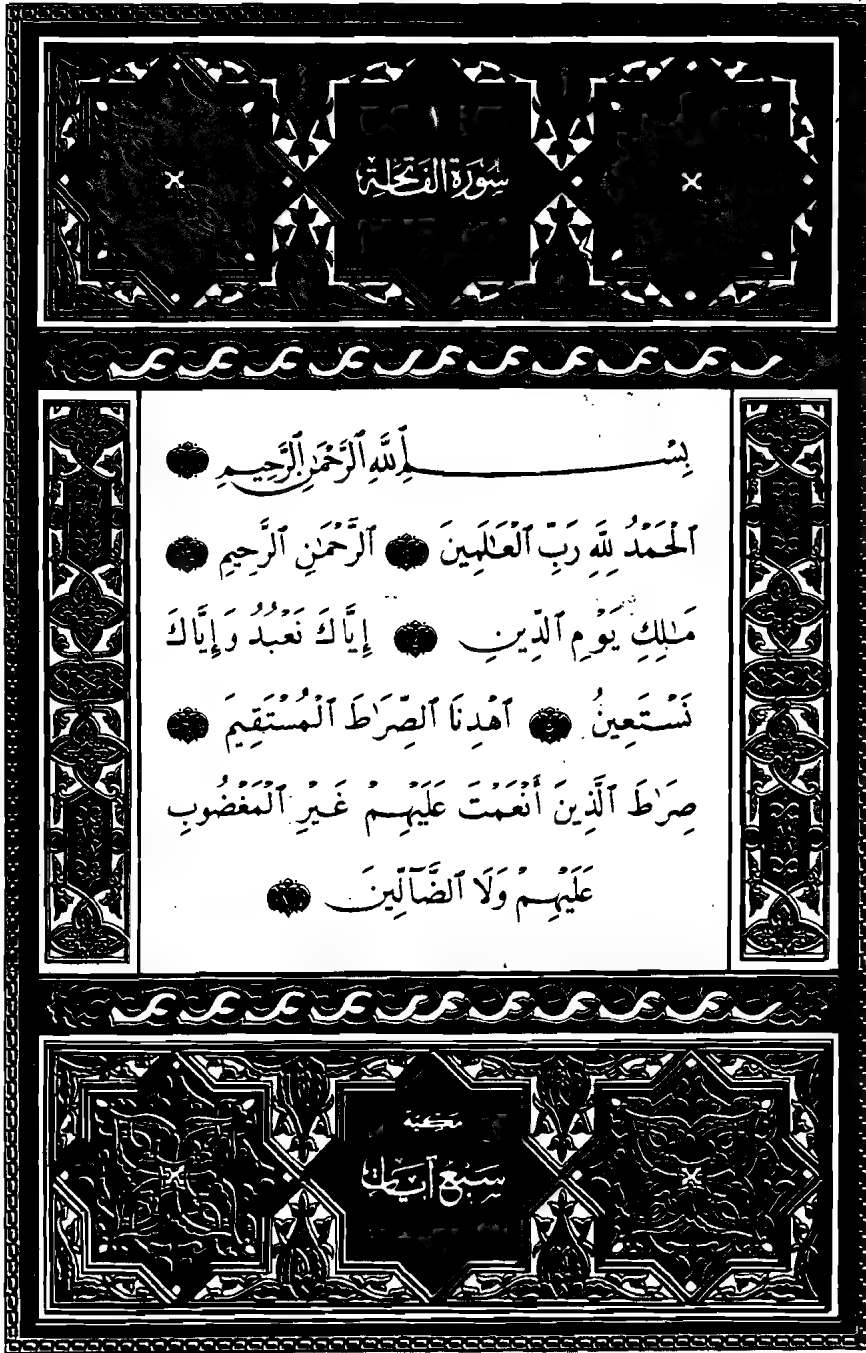 ١
سُورَةُ الفَاتِحَةِ
بِسْمِ ٱللَّهِ ٱلرَّحْمَٰنِ ٱلرَّحِيمِ ١
ٱلْحَمْدُ لِلَّهِ رَبِّ ٱلْعَٰلَمِينَ ٢ ٱلرَّحْمَٰنِ ٱلرَّحِيمِ ٣
مَٰلِكِ يَوْمِ ٱلدِّينِ ٤ إِيَّاكَ نَعْبُدُ وَإِيَّاكَ
نَسْتَعِينُ ٥ ٱهْدِنَا ٱلصِّرَٰطَ ٱلْمُسْتَقِيمَ ٦
صِرَٰطَ ٱلَّذِينَ أَنْعَمْتَ عَلَيْهِمْ غَيْرِ ٱلْمَغْضُوبِ
عَلَيْهِمْ وَلَا ٱلضَّآلِّينَ ٧
مَكيّة
سَبْعُ آيَاتٍ